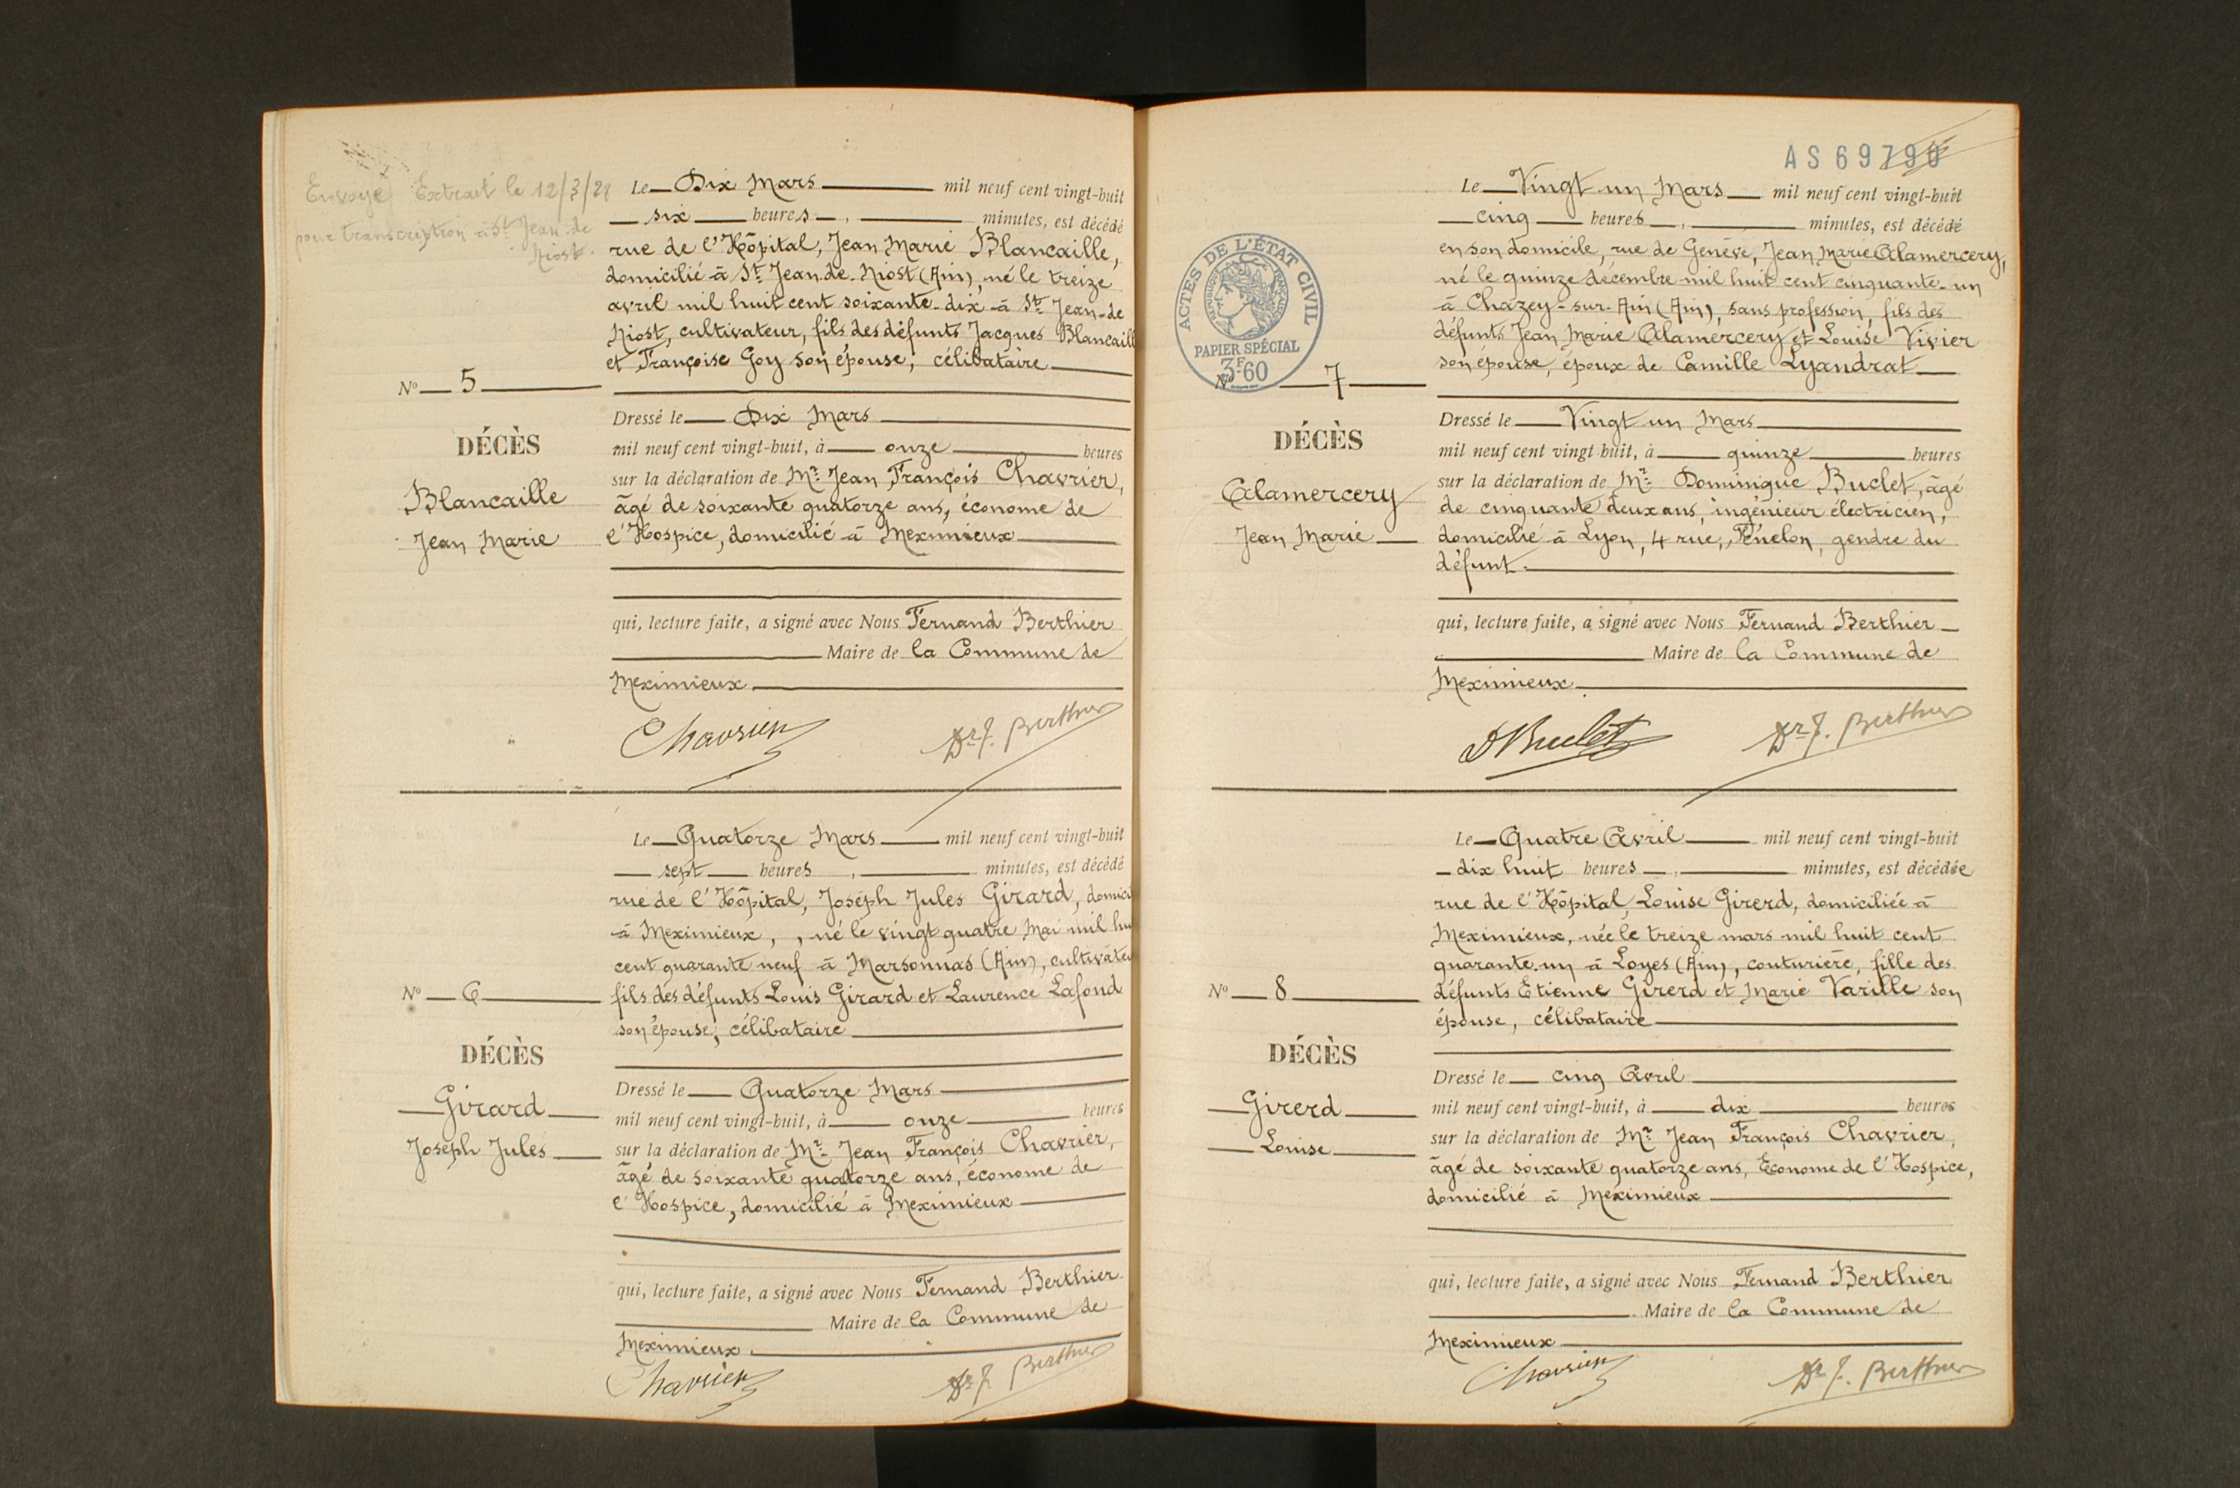 Envoyé Extrait le 12/3/28
pour transcription à St Jean de
Niost.
Le Dix Mars mil neuf cent vingt-huit
six heures, minutes, est décédé
rue de l'Hôpital, Jean Marie Blancaille,
domicilié à St Jean-de-Niost (Ain), né le treize
avril mil huit cent soixante-dix à St Jean-de
Niost, cultivateur, fils des défunts Jacques Blancaill
et Françoise Goy son épouse, célibataire
No 5
DÉCÈS
Blancaille
Jean Marie
Dressé le Dix Mars
mil neuf cent vingt-huit, à onze heures
sur la déclaration de Mr Jean François Chavrier,
âgé de soixante quatorze ans, économe de
l'Hospice, domicilié à Meximieux
qui, lecture faite, a signé avec Nous Fernand Berthier
Maire de la Commune de
Meximieux
Chavrier Dr F. Berthier
Le Quatorze Mars mil neuf cent vingt-huit
sept heures, minutes, est décédé
rue de l'Hôpital, Joseph Jules Girard, domici
à Meximieux, , né le vingt quatre Mai mil hu
cent quarante neuf à Marsonnas (Ain), cultivateu
fils des défunts Louis Girard et Laurence Lafond
son épouse, célibataire
No 6
DÉCÈS
Girard
Joseph Jules
Dressé le Quatorze Mars
mil neuf cent vingt-huit, à onze heures
sur la déclaration de Mr Jean François Chavrier,
âgé de soixante quatorze ans, économe de
l'Hospice, domicilié à Meximieux
qui, lecture faite, a signé avec Nous Fernand Berthier
Maire de la Commune de
Meximieux
Chavrier Dr F. Berthier
AS 69790
ACTES DE L'ÉTAT CIVIL
PAPIER SPÉCIAL
3F60
Le Vingt un Mars mil neuf cent vingt-huit
cinq heures, minutes, est décédé
en son domicile, rue de Genève, Jean Marie Alamercery,
né le quinze décembre mil huit cent cinquante-un
à Chazey-sur-Ain (Ain), sans profession, fils des
défunts Jean Marie Alamercery et Louise Vivier
son épouse, époux de Camille Lyandrat
No 7
DÉCÈS
Alamercery
Jean Marie
Dressé le Vingt un Mars
mil neuf cent vingt-huit, à quinze heures
sur la déclaration de Mr Dominique Buclet, âgé
de cinquante deux ans, ingénieur électricien,
domicilié à Lyon, 4 rue, Fénelon, gendre du
défunt.
qui, lecture faite, a signé avec Nous Fernand Berthier
Maire de la Commune de
Meximieux
D Buclet Dr F. Berthier
Le Quatre Avril mil neuf cent vingt-huit
dix huit heures, minutes, est décédée
rue de l'Hôpital, Louise Girerd, domiciliée à
Meximieux, née le treize mars mil huit cent
quarante-un à Loyes (Ain), couturière, fille des
défunts Etienne Girerd et Marie Varille son
épouse, célibataire
No 8
DÉCÈS
Girerd
Louise
Dressé le cinq Avril
mil neuf cent vingt-huit, à dix heures
sur la déclaration de Mr Jean François Chavrier,
âgé de soixante quatorze ans, Econome de l'Hospice,
domicilié à Meximieux
qui, lecture faite, a signé avec Nous Fernand Berthier
Maire de la Commune de
Meximieux
Chavrier Dr F. Berthier